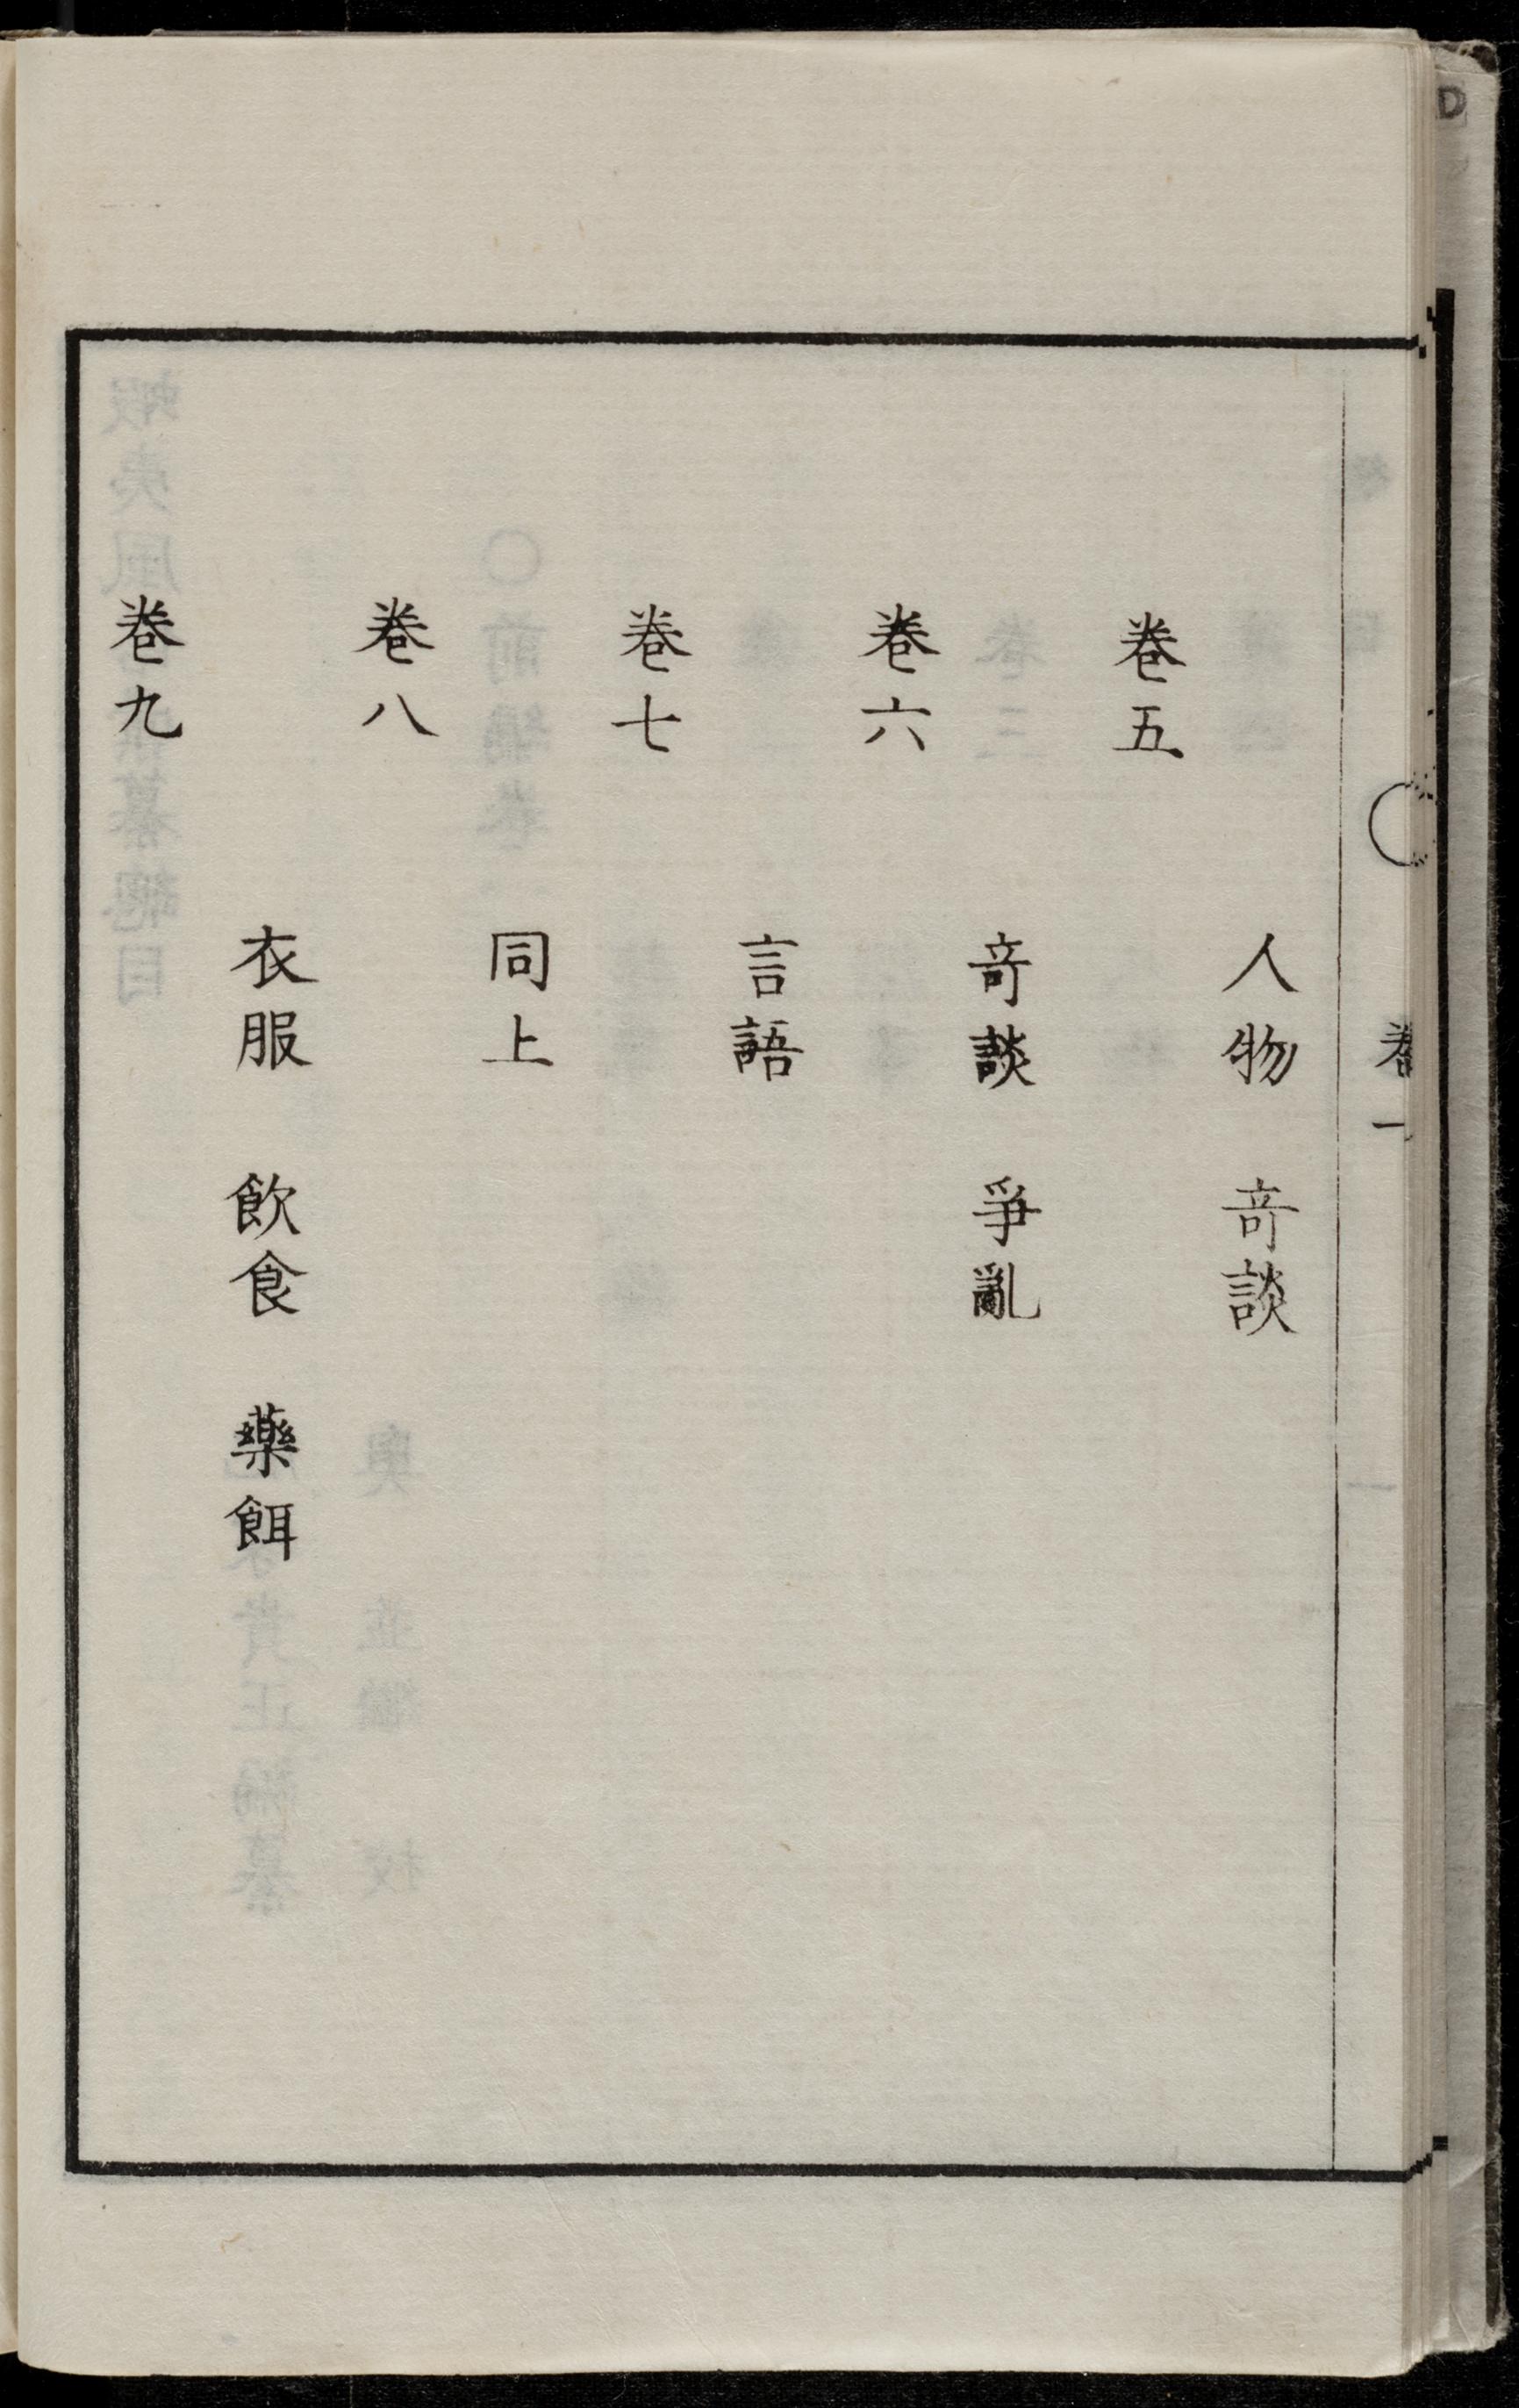 人物 竒談
卷五
竒談 爭亂
卷六
言語
卷七
同上
卷八
衣服 飮食 藥餌
卷九